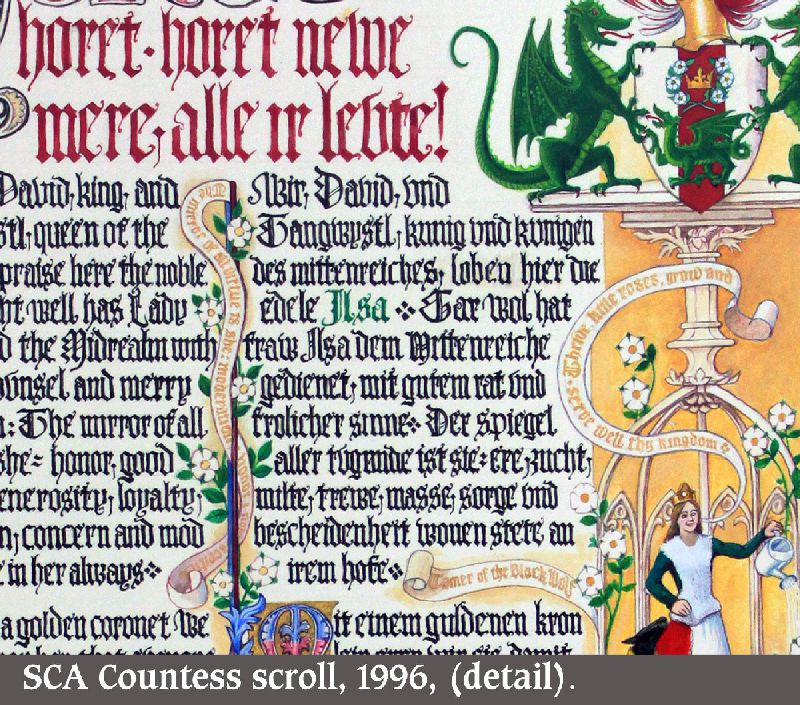 horet · horet newe
mere, alle ir levte!
David, king, and
queen of the
praise here the noble
well has Lady
the Midrealm with
counsel and merry
The mirror of all
she: honor, good
generosity, loyalty,
concern and mod
in her always
a golden coronet we
Wir, David, vnd
Tangwystl, kunig vnd kvnigen
des mittenreiches, loben hier die
edele Ilsa ❖ Gar wol hat
fraw Ilsa dem Mittenreiche
gedienet, mit gutem rat vnd
frolicher sinne❖ Der spiegel
aller tvgende ist sie: ere, zucht,
milte, trewe, masse, sorge vnd
bescheidenheit wonen stete an
irem hofe❖
it einem guldenen kron
the mirror of all virtue is she:
Tamer of the Black Wolf
Thrive, little roses, grow and
serve well thy kingdom
SCA Countess scroll, 1996, (detail).